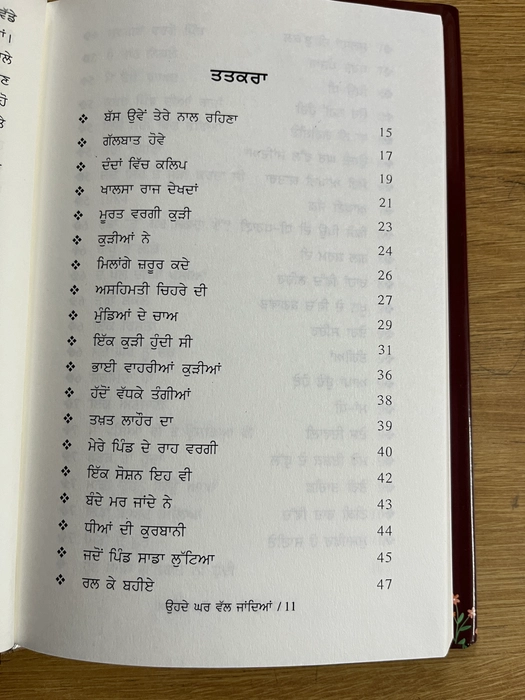 ਤਤਕਰਾ
❖ ਬੱਸ ਉਵੇਂ ਤੇਰੇ ਨਾਲ ਰਹਿਣਾ 15
❖ ਗੱਲਬਾਤ ਹੋਵੇ 17
❖ ਦੰਦਾਂ ਵਿੱਚ ਕਲਿਪ 19
❖ ਖਾਲਸਾ ਰਾਜ ਦੇਖਦਾਂ 21
❖ ਮੂਰਤ ਵਰਗੀ ਕੁੜੀ 23
❖ ਕੁੜੀਆਂ ਨੇ 24
❖ ਮਿਲਾਂਗੇ ਜ਼ਰੂਰ ਕਦੇ 26
❖ ਅਸਹਿਮਤੀ ਚਿਹਰੇ ਦੀ 27
❖ ਮੁੰਡਿਆਂ ਦੇ ਚਾਅ 29
❖ ਇੱਕ ਕੁੜੀ ਹੁੰਦੀ ਸੀ 31
❖ ਭਾਈ ਵਾਹਰੀਆਂ ਕੁੜੀਆਂ 36
❖ ਹੱਦੋਂ ਵੱਧਕੇ ਤੰਗੀਆਂ 38
❖ ਤਖ਼ਤ ਲਾਹੌਰ ਦਾ 39
❖ ਮੇਰੇ ਪਿੰਡ ਦੇ ਰਾਹ ਵਰਗੀ 40
❖ ਇੱਕ ਸੋਸ਼ਨ ਇਹ ਵੀ 42
❖ ਬੰਦੇ ਮਰ ਜਾਂਦੇ ਨੇ 43
❖ ਧੀਆਂ ਦੀ ਕੁਰਬਾਨੀ 44
❖ ਜਦੋਂ ਪਿੰਡ ਸਾਡਾ ਲੁੱਟਿਆ 45
❖ ਰਲ ਕੇ ਬਹੀਏ 47
ਉਹਦੇ ਘਰ ਵੱਲ ਜਾਂਦਿਆਂ / 11